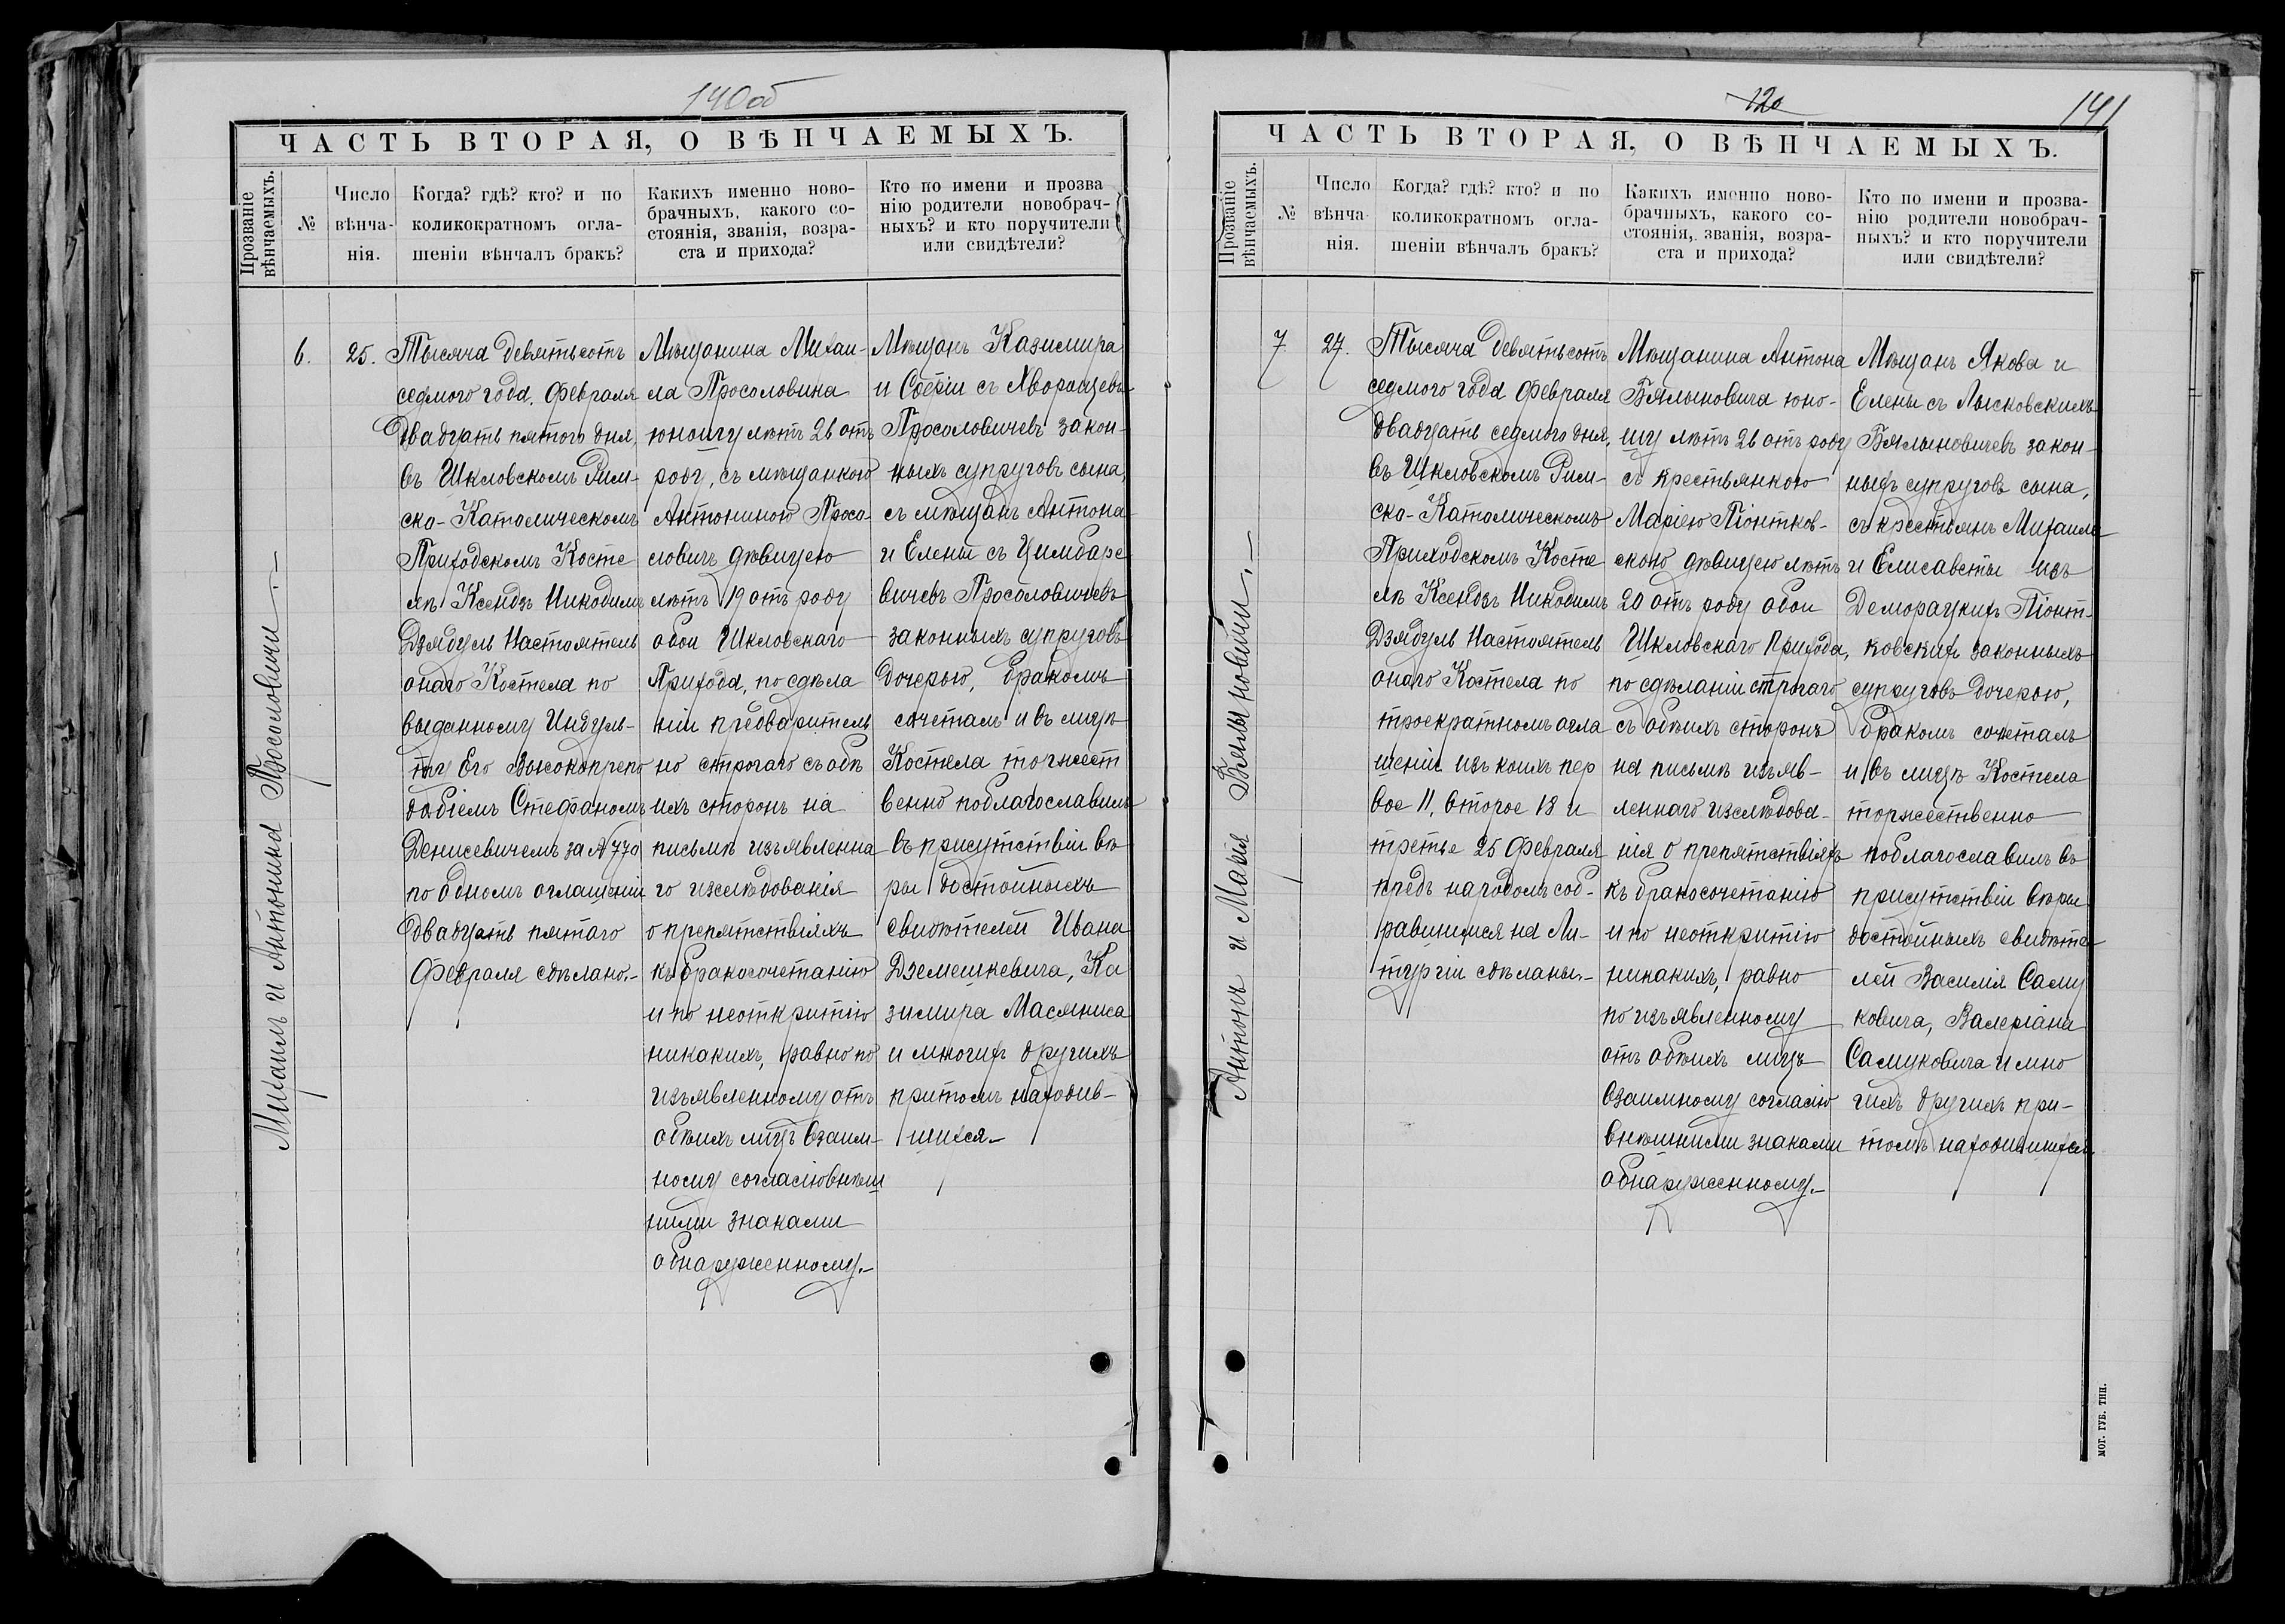 140об
ЧАСТЬ ВТОРАЯ, О ВѢНЧАЕМЫХЪ.
Прозваніе вѣнчаемыхъ.
№
Число вѣнча-
нія.
Когда? гдѣ? кто? и по
коликократномъ огла-
шеніи вѣнчалъ бракъ?
Какихъ именно ново-
брачныхъ, какого со-
стоянія, званія, возра-
ста и прихода?
Кто по имени и прозва
нію родители новобрач-
ныхъ? и кто поручители
или свидѣтели?
Михаилъ и Антонина Просоловичи.—
6.
25.
Тысяча девятьсотъ
седмого года, Февраля
двадцать пятого дня,
въ Шкловскомъ Рим-
ско-Католическомъ
Приходскомъ Косте
лѣ Ксендзъ Никодимъ
Дзядуль Настоятель
онаго Костела по
выданному Индуль-
ту Его Высокопрепо
добіемъ Стефаномъ
Денисевичемъ за № 770
по одномъ оглашеніи
двадцать пятаго
Февраля сдѣлано.—
Мѣщанина Михаи-
ла Просоловича
юношу лѣтъ 26 отъ
роду, съ мѣщанкою
Антониною Просо-
ловичъ дѣвицею
лѣтъ 19 отъ роду
обои Шкловскаго
Прихода, по сдѣла
ніи предваритель
но строгаго съ обѣ
ихъ сторонъ на
письмѣ изъявленна
го изслѣдованія
о препятствіяхъ
къ бракосочетанію
и по неоткритію
никакихъ, равно по
изъявленному отъ
обѣихъ лицъ взаим-
ному согласію внѣш
ними знаками
обнаруженному.—
Мѣщанъ Казимира
и Софіи съ Хворощевъ
Просоловичевъ закон-
ныхъ супруговъ сына,
съ мѣщанъ Антона
и Елены съ Цимбаре
вичевъ Просоловичевъ
законныхъ супруговъ
дочерью, бракомъ
сочеталъ и въ лицѣ
Костела торжест
венно поблагославилъ
въ присутствіи вѣ
ры достойныхъ
свидѣтелей Ивана
Дземешкевича, Ка
зимира Масяниса
и многихъ другихъ
притомъ находив-
шихся.—
120
141
ЧАСТЬ ВТОРАЯ, О ВѢНЧАЕМЫХЪ.
Прозваніе вѣнчаемыхъ.
№
Число
вѣнча-
нія.
Когда? гдѣ? кто? и по
коликократномъ огла-
шеніи вѣнчалъ бракъ?
Какихъ именно ново-
брачныхъ, какого со-
стоянія, званія, возра-
ста и прихода?
Кто по имени и прозва-
нію родители новобрач-
ныхъ? и кто поручители
или свидѣтели?
Антонъ и Марія Бялыновичи.—
7
27.
Тысяча девятьсотъ
седмого года Февраля
двадцать седмого дня,
въ Шкловскомъ Рим-
ско-Католическомъ
Приходскомъ Косте
лѣ Ксендзъ Никодимъ
Дзядуль Настоятель
онаго Костела по
троекратномъ огла
шеніи изъ коихъ пер
вое 11, второе 18 и
третье 25 Февраля
предъ народомъ соб-
равшимся на Ли-
тургіи сдѣланы.—
Мѣщанина Антона
Бялыновича юно-
шу лѣтъ 26 отъ роду
съ крестьянкою
Маріею Піонтков-
скою дѣвицею лѣтъ
20 отъ роду обои
Шкловскаго Прихода,
по сдѣланіи строгаго
съ обѣихъ сторонъ
на письмѣ изъяв-
леннаго изслѣдова-
нія о препятствіяхъ
къ бракосочетанію
и по неоткритію
никакихъ, равно
по изъявленному
отъ обѣихъ лицъ
взаимному согласію
внѣшними знаками
обнаруженному.—
Мѣщанъ Якова и
Елены съ Лысковскихъ
Бялыновичевъ закон-
ныхъ супруговъ сына,
съ крестьянъ Михаила
и Елисаветы изъ
Деморацкихъ Піонт-
ковскихъ законныхъ
супруговъ дочерью,
бракомъ сочеталъ
и въ лицѣ Костела
торжественно
поблагославилъ въ
присутствіи вѣры
достойныхъ свидѣте
лей Василія Саму
ковича, Валеріана
Самуковича и мно
гихъ другихъ при-
томъ находившихся.
МОГ. ГУБ. ТИП.